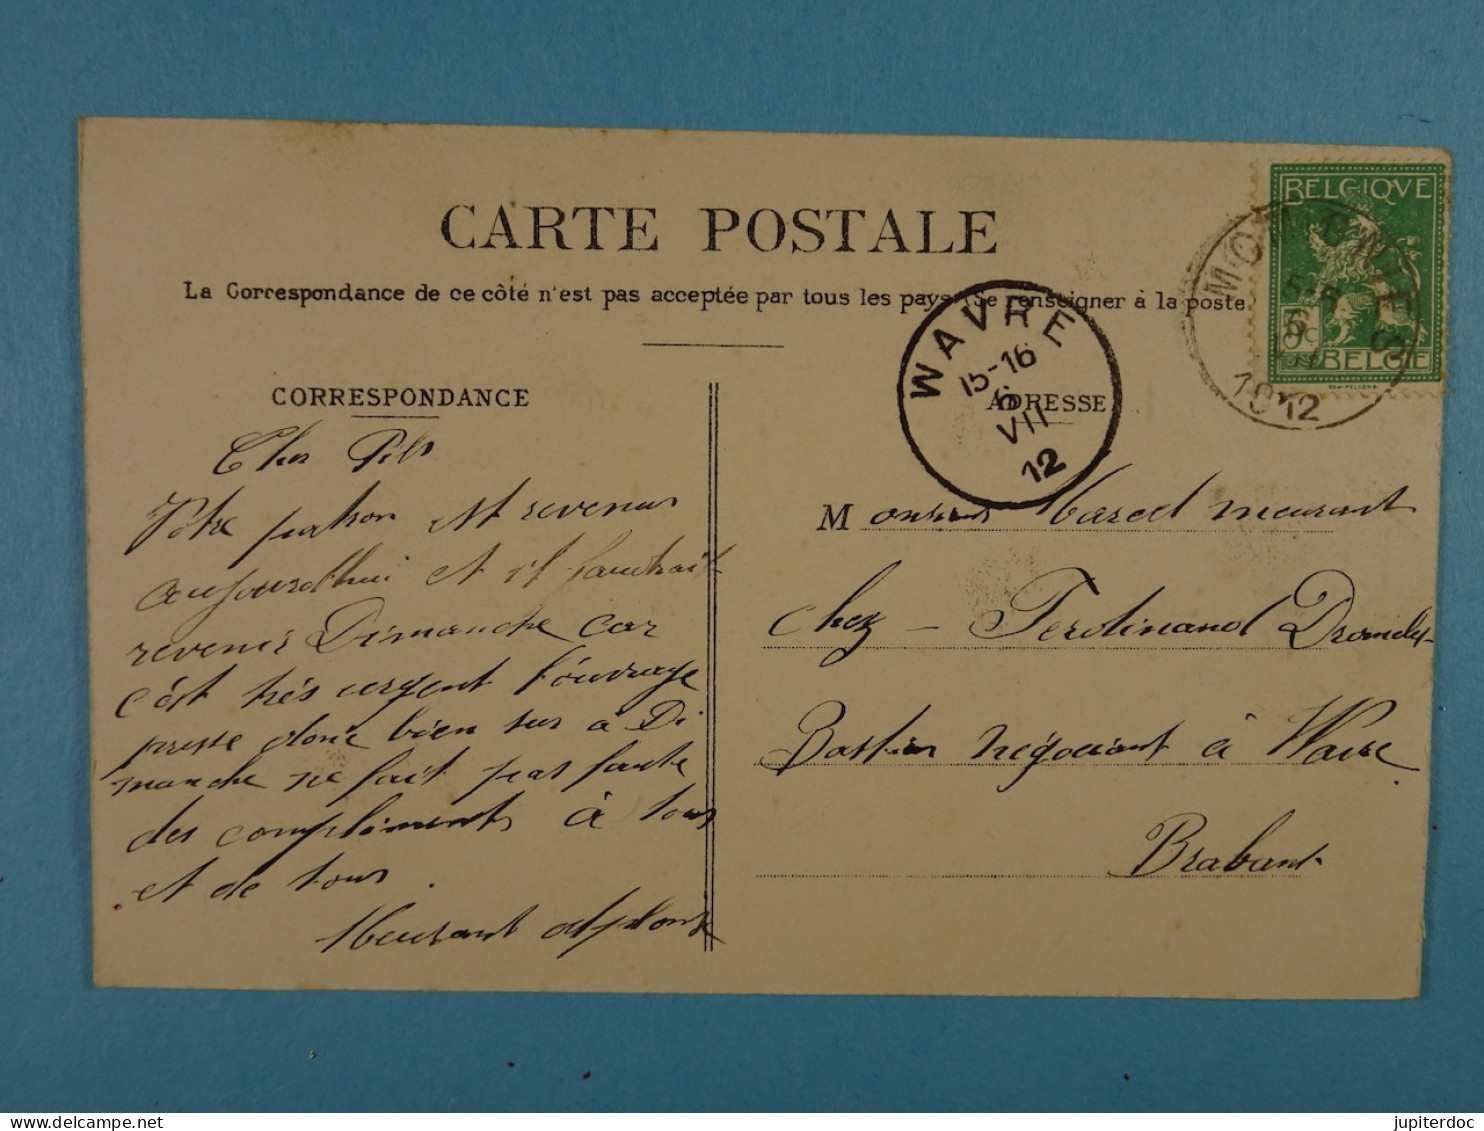 CARTE POSTALE
La Correspondance de ce côté n'est pas acceptée par tous les pays (Se renseigner à la poste
CORRESPONDANCE
ADRESSE
BELGIQVE
5c
BELGIE
1912
WAVRE
15-16
6
VII
12
Cher Fils
Votre patron est revenus
aujourdhui et il faudrait
revenir Dimanche car
c'est très urgent l'ouvrage
presse donc bien sur a Di
manche ne fait pas faute
des compliments à tous
et de tous.
Meurant alphonse
Monsieur Marcel meurant
chez - Ferdinand
Bastin négociant à Wavre
Brabant
www.delcampe.net
jupiterdoc